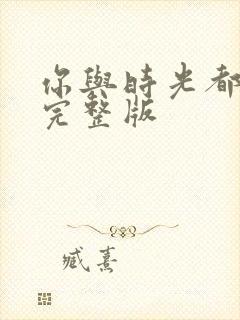 你與時光都
完整版
臧熹